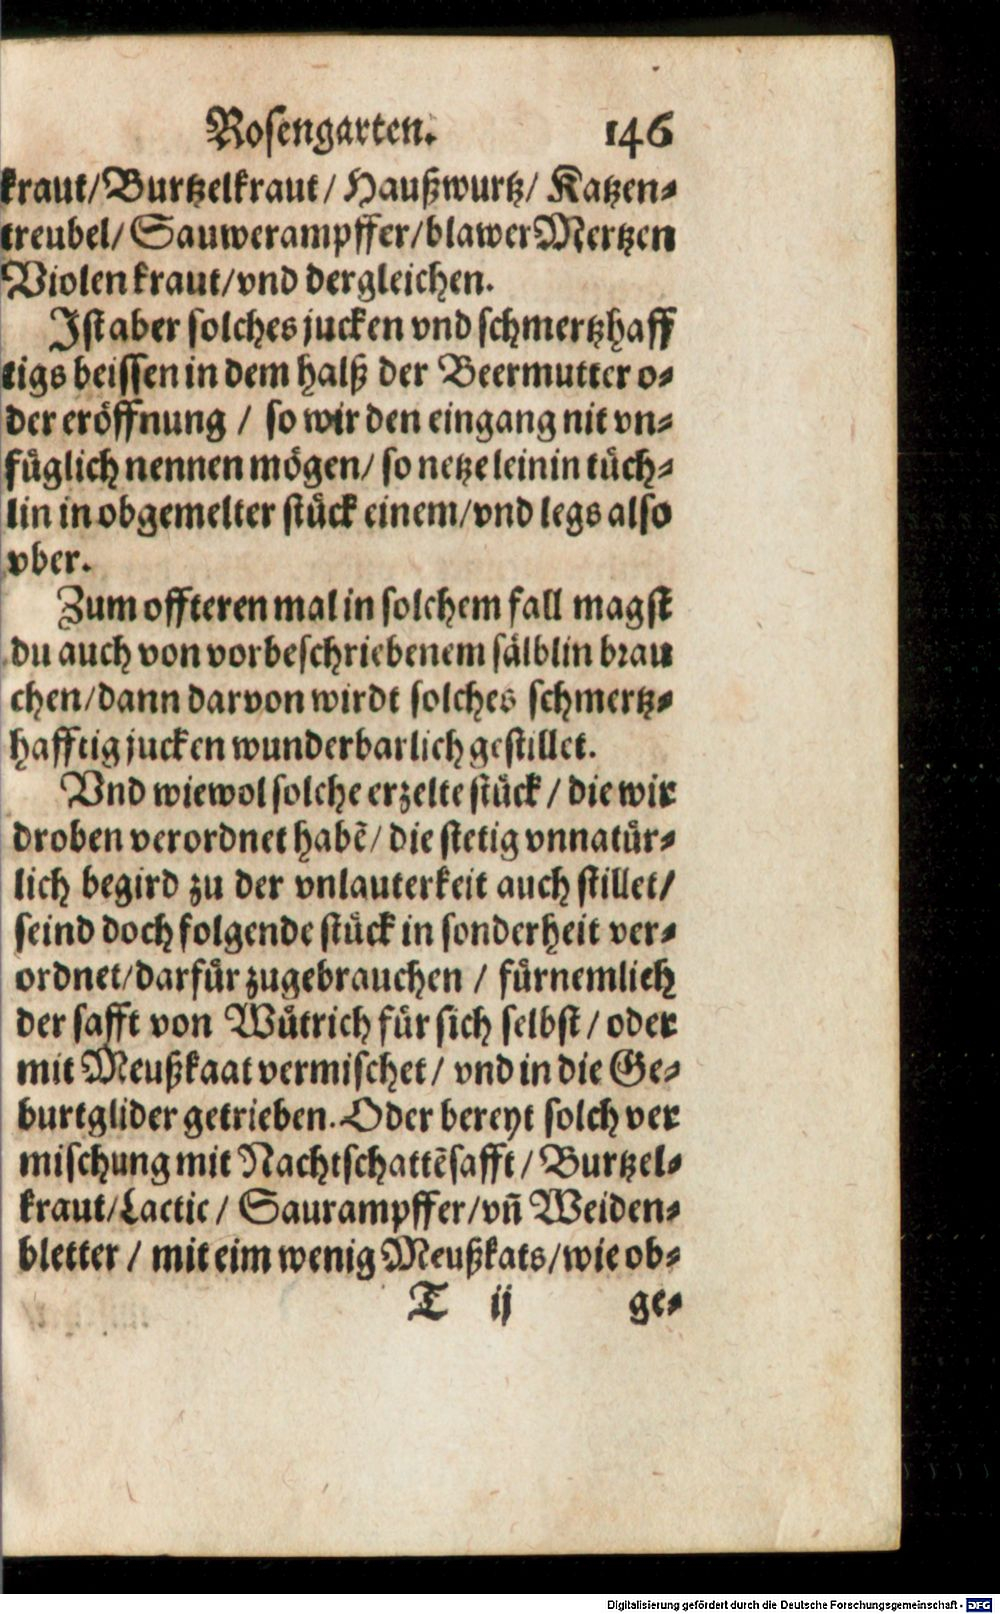 Rosengarten. 146
kraut/Burtzelkraut/Haußwurtz/Katzen⸗
treubel/Sauwerampffer/blawer Mertzen
Violen kraut/vnd dergleichen.
Ist aber solches jucken vnd schmertzhaff
tigs beissen in dem halß der Beermutter o⸗
der eröffnung / so wir den eingang nit vn⸗
füglich nennen mögen/ so netze leinin tüch⸗
lin in obgemelter stück einem/vnd legs also
vber.
Zum offteren mal in solchem fall magst
du auch von vorbeschriebenem sälblin brau
chen/dann darvon wirdt solches schmertz⸗
hafftig jucken wunderbarlich gestillet.
Vnd wiewol solche erzelte stück / die wir
droben verordnet habẽ/ die stetig vnnatür⸗
lich begird zu der vnlauterkeit auch stillet/
seind doch folgende stück in sonderheit ver⸗
ordnet/darfür zugebrauchen / fürnemlich
der safft von Wůtrich für sich selbst / oder
mit Meußkaat vermischet/ vnd in die Ge⸗
burtglider getrieben. Oder bereyt solch ver
mischung mit Nachtschattẽsafft / Burtzel⸗
kraut/Lactic / Saurampffer/vñ Weiden⸗
bletter / mit eim wenig Meußkats/wie ob⸗
T ij ge⸗
Digitalisierung gefördert durch die Deutsche Forschungsgemeinschaft - DFG